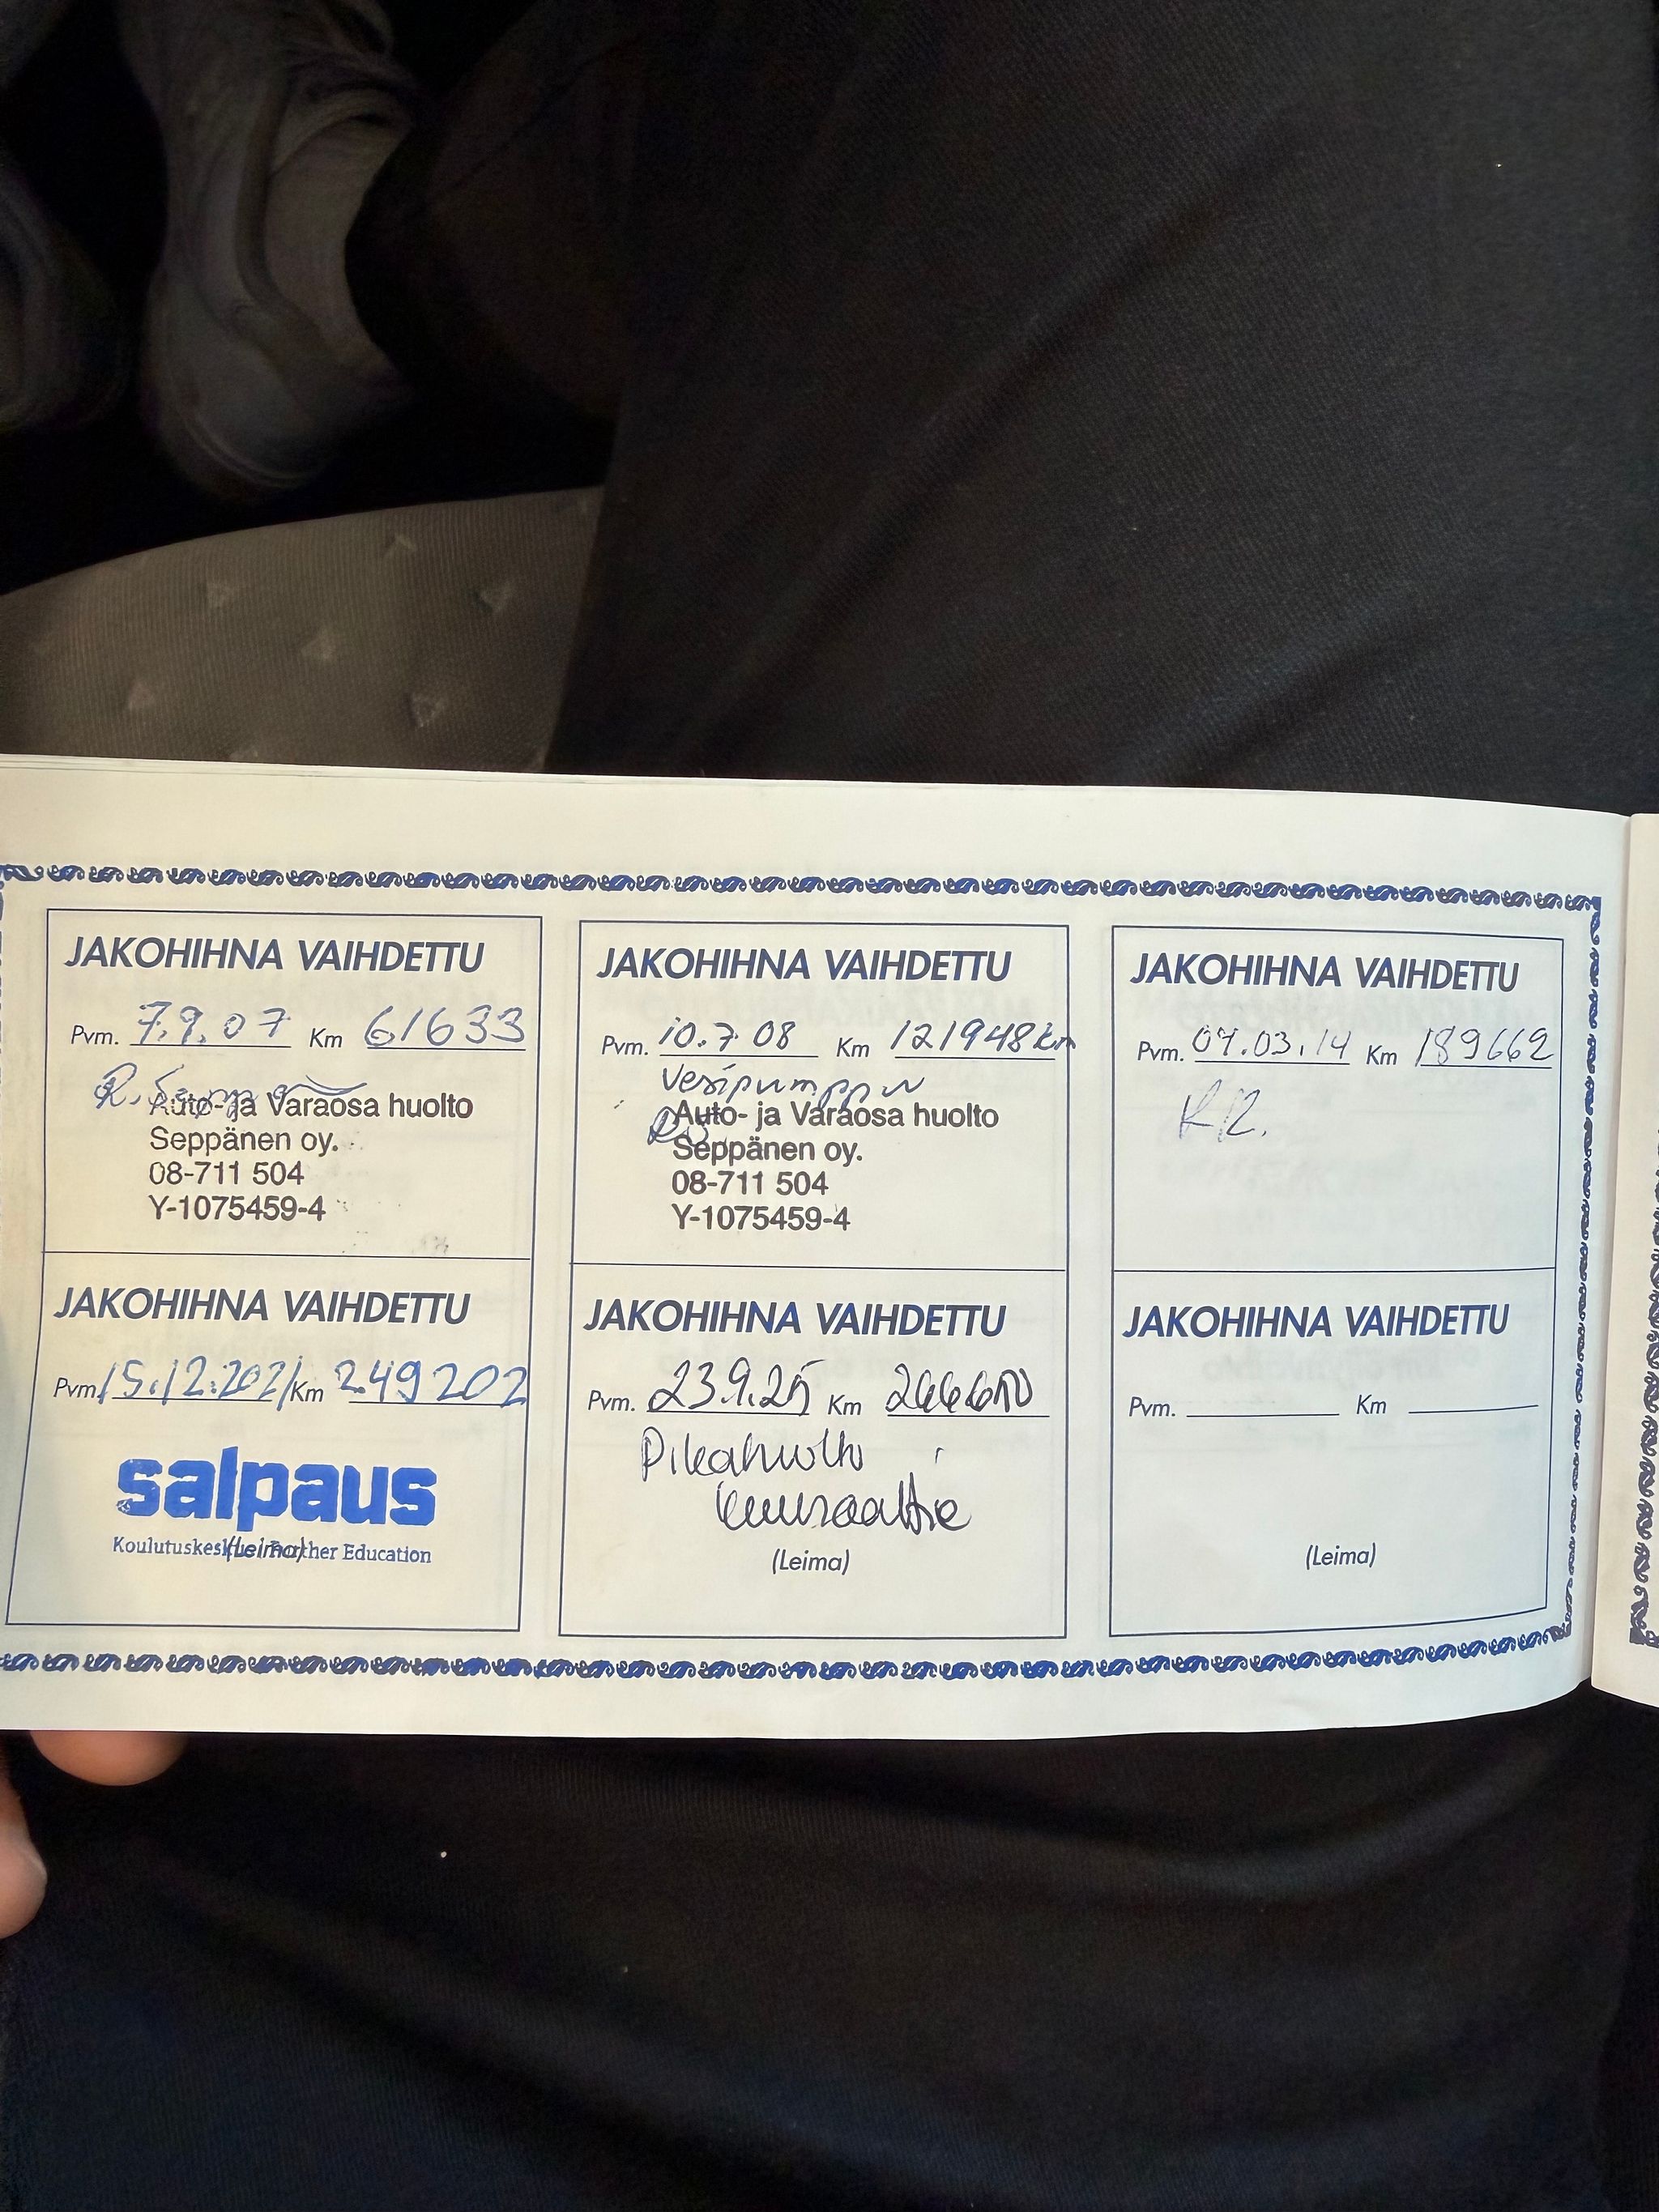 JAKOHIHNA VAIHDETTU
Pvm. 7.9.07 Km 61633
R. Seppä
Auto- ja Varaosa huolto
Seppänen oy.
08-711 504
Y-1075459-4
JAKOHIHNA VAIHDETTU
Pvm. 10.7 08 Km 121948km
Vesipumppu
RS
Auto- ja Varaosa huolto
Seppänen oy.
08-711 504
Y-1075459-4
JAKOHIHNA VAIHDETTU
Pvm. 04.03.14 Km 189662
KR.
JAKOHIHNA VAIHDETTU
Pvm. 15.12.2021 Km 249202
salpaus
Koulutuskeskus Further Education
(Leima)
JAKOHIHNA VAIHDETTU
Pvm. 23.9.25 Km
Pikahuolto
(Leima)
JAKOHIHNA VAIHDETTU
Pvm. Km
(Leima)